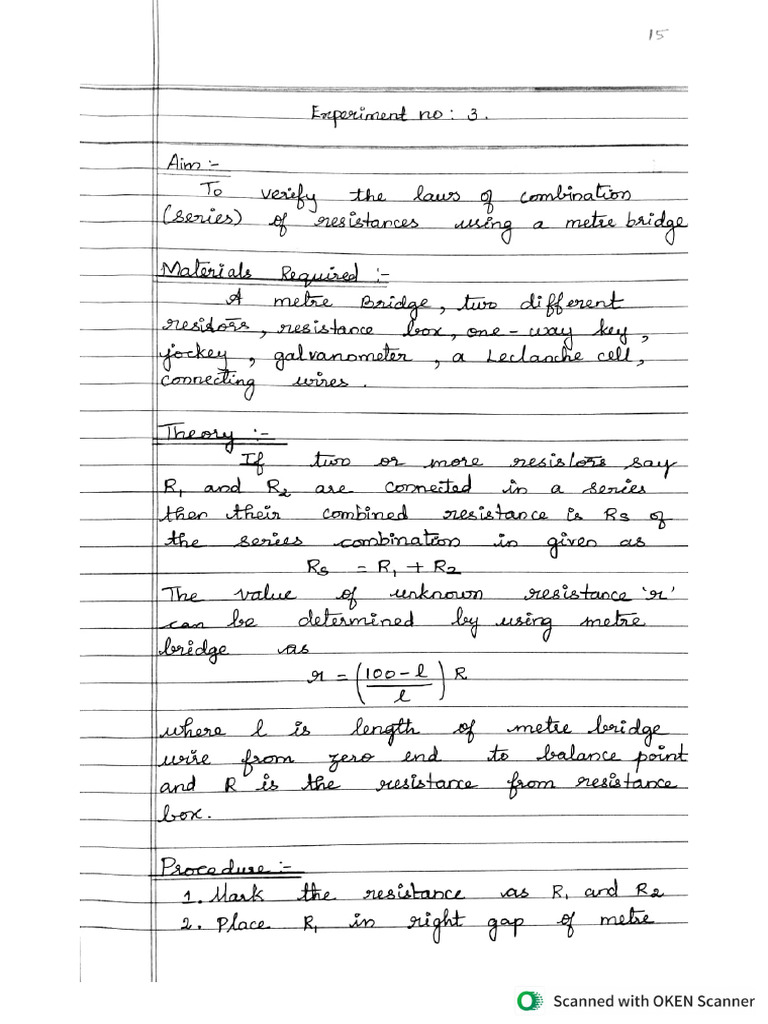 15
Experiment no: 3.
Aim :-
To verify the laws of combination
(series) of resistances using a metre bridge
Materials Required :-
A metre Bridge, two different
resistors, resistance box, one-way key,
jockey, galvanometer, a Leclanche cell,
connecting wires.
Theory :-
If two or more resistors say
R₁ and R₂ are connected in a series
then their combined resistance is Rs of
the series combination in given as
Rs = R₁ + R₂
The value of unknown resistance 'r'
can be determined by using metre
bridge as
r = (100-l / l) R
where l is length of metre bridge
wire from zero end to balance point
and R is the resistance from resistance
box.
Procedure :-
1. Mark the resistance as R₁ and R₂
2. Place R₁ in right gap of metre
Scanned with OKEN Scanner